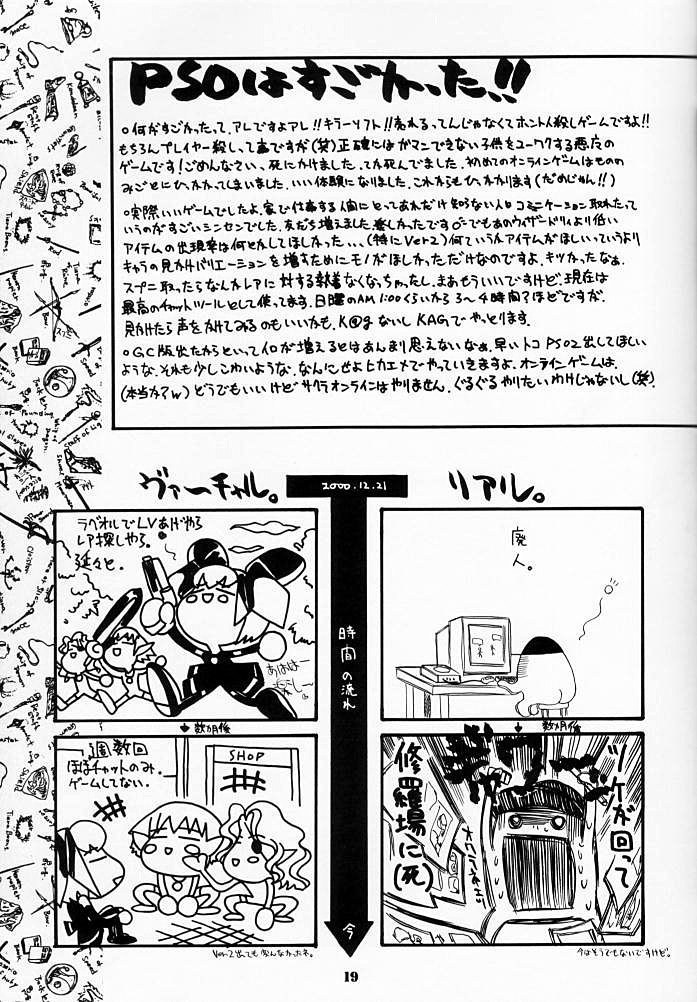 PSOはすごかった!!
○何がすごかったって、アレですよアレ!!キラーソフト!!売れるってんじゃなくてホント人殺しゲームですよ!!
もちろんプレイヤー殺しって事ですが(笑)正確にはガマンできない子供をユーワクする悪魔の
ゲームです!ごめんなさい、死にかけました。てか死んでました。初めてのオンラインゲームはものの
みごとにひっかかってしまいました。いい体験になりました。これからもひっかかります(だめじゃん!!)
○実際いいゲームでしたよ。家で仕事する人間にとってあれだけ知らない人とコミュニケーション取れたって
いうのがすごいシンセンでした。友だち増えました。楽しかったです。でもあのウィザードリィより低い
アイテムの出現率は何とかしてほしかった...(特にVer2)何ていうかアイテムがほしいっていうより
キャラの見かけバリエーションを増すためにモノがほしかっただけなのですよ。キツかったなぁ。
スプニ取ったらなんかレアに対する執着なくなっちゃったし。まあもういいですけど。現在は
最高のチャットツールとして使ってます。日曜のAM1:00くらいから3〜4時間?ほどですが。
見かけたら声をかけてみるのもいいかも。K@gないしKAGでやっとります。
○GC版出たからといってイロが増えるとはあんまり思えないなぁ。早いトコPSO2出してほしい
ような。それも少しこわいような。なんにせよヒカエメでやっていきますよ。オンラインゲームは。
(本当かァw)どうでもいいけどサクラオンラインはやりません。ぐるぐるやりたいわけじゃないし(笑)
ヴァーチャル。
2000.12.21
リアル。
ラベオルでLVあげやろ
レア探しやろ。
延々と。
あははー
楽しー
廃人。
時間の流れ
数カ月後
数カ月後
週数回
ほぼチャットのみ。
ゲームしてない。
SHOP
ツケが回って
修羅場に(死)
今
Ver2出ても変んなかったネ。
今はそうでもないですけど。
19